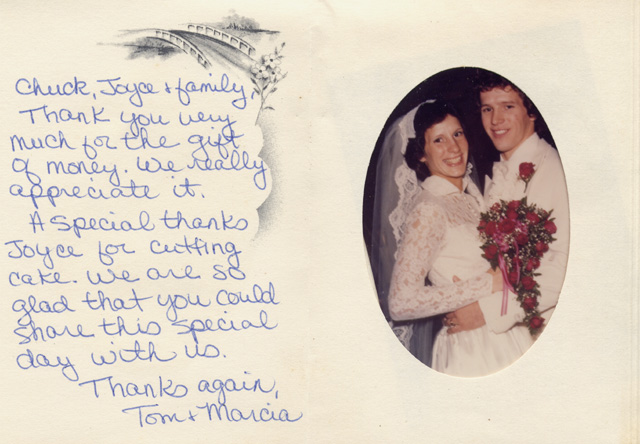 Chuck, Joyce + family,
Thank you very
much for the gift
of money. We really
appreciate it.
A special thanks
Joyce for cutting
cake. We are so
glad that you could
share this special
day with us.
Thanks again,
Tom + Marcia